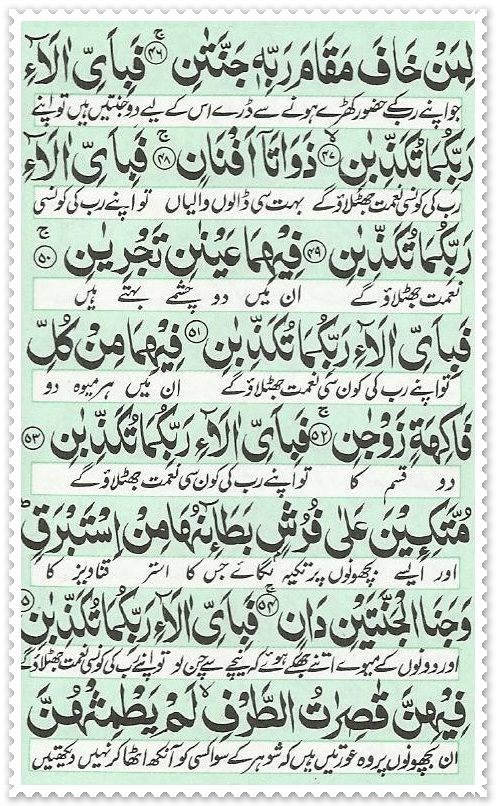 لِمَنْ خَافَ مَقَامَ رَبِّهٖ جَنَّتٰنِ ۚ ﴿۴۶﴾ فَبِاَىِّ اٰلَآءِ
جو اپنے رب کے حضور کھڑے ہونے سے ڈرے اس کے لیے دو جنتیں ہیں تو اپنے
رَبِّكُمَا تُكَذِّبٰنِ ۙ ﴿۴۷﴾ ذَوَاتَآ اَفْنَانٍ ۚ ﴿۴۸﴾ فَبِاَىِّ اٰلَآءِ
رب کی کونسی نعمت جھٹلاؤ گے بہت سی ڈالوں والیاں تو اپنے رب کی کونسی
رَبِّكُمَا تُكَذِّبٰنِ ﴿۴۹﴾ فِيْهِمَا عَيْنٰنِ تَجْرِيٰنِ ۚ ﴿۵۰﴾
نعمت جھٹلاؤ گے ان میں دو چشمے بہتے ہیں
فَبِاَىِّ اٰلَآءِ رَبِّكُمَا تُكَذِّبٰنِ ﴿۵۱﴾ فِيْهِمَا مِنْ كُلِّ
تو اپنے رب کی کون سی نعمت جھٹلاؤ گے ان میں ہر میوہ دو
فَاكِهَةٍ زَوْجٰنِ ۚ ﴿۵۲﴾ فَبِاَىِّ اٰلَآءِ رَبِّكُمَا تُكَذِّبٰنِ ﴿۵۳﴾
دو قسم کا تو اپنے رب کی کون سی نعمت جھٹلاؤ گے
مُتَّكِـِٕيْنَ عَلٰى فُرُشٍۭ بَطَآىِٕنُهَا مِنْ اِسْتَبْرَقٍ
اور ایسے بچھونوں پر تکیہ لگائے جس کا استر قناویز کا
وَجَنَا الْجَنَّتَيْنِ دَانٍ ۚ ﴿۵۴﴾ فَبِاَىِّ اٰلَآءِ رَبِّكُمَا تُكَذِّبٰنِ
اور دونوں کے میوے اتنے جھکے ہوئے کہ نیچے سے چن لو تو اپنے رب کی کونسی نعمت جھٹلاؤ گے
فِيْهِنَّ قٰصِرٰتُ الطَّرْفِ ۙ لَمْ يَطْمِثْهُنَّ
ان بچھونوں پر وہ عورتیں ہیں کہ شوہر کے سوا کسی کو آنکھ اٹھا کر نہیں دیکھتیں